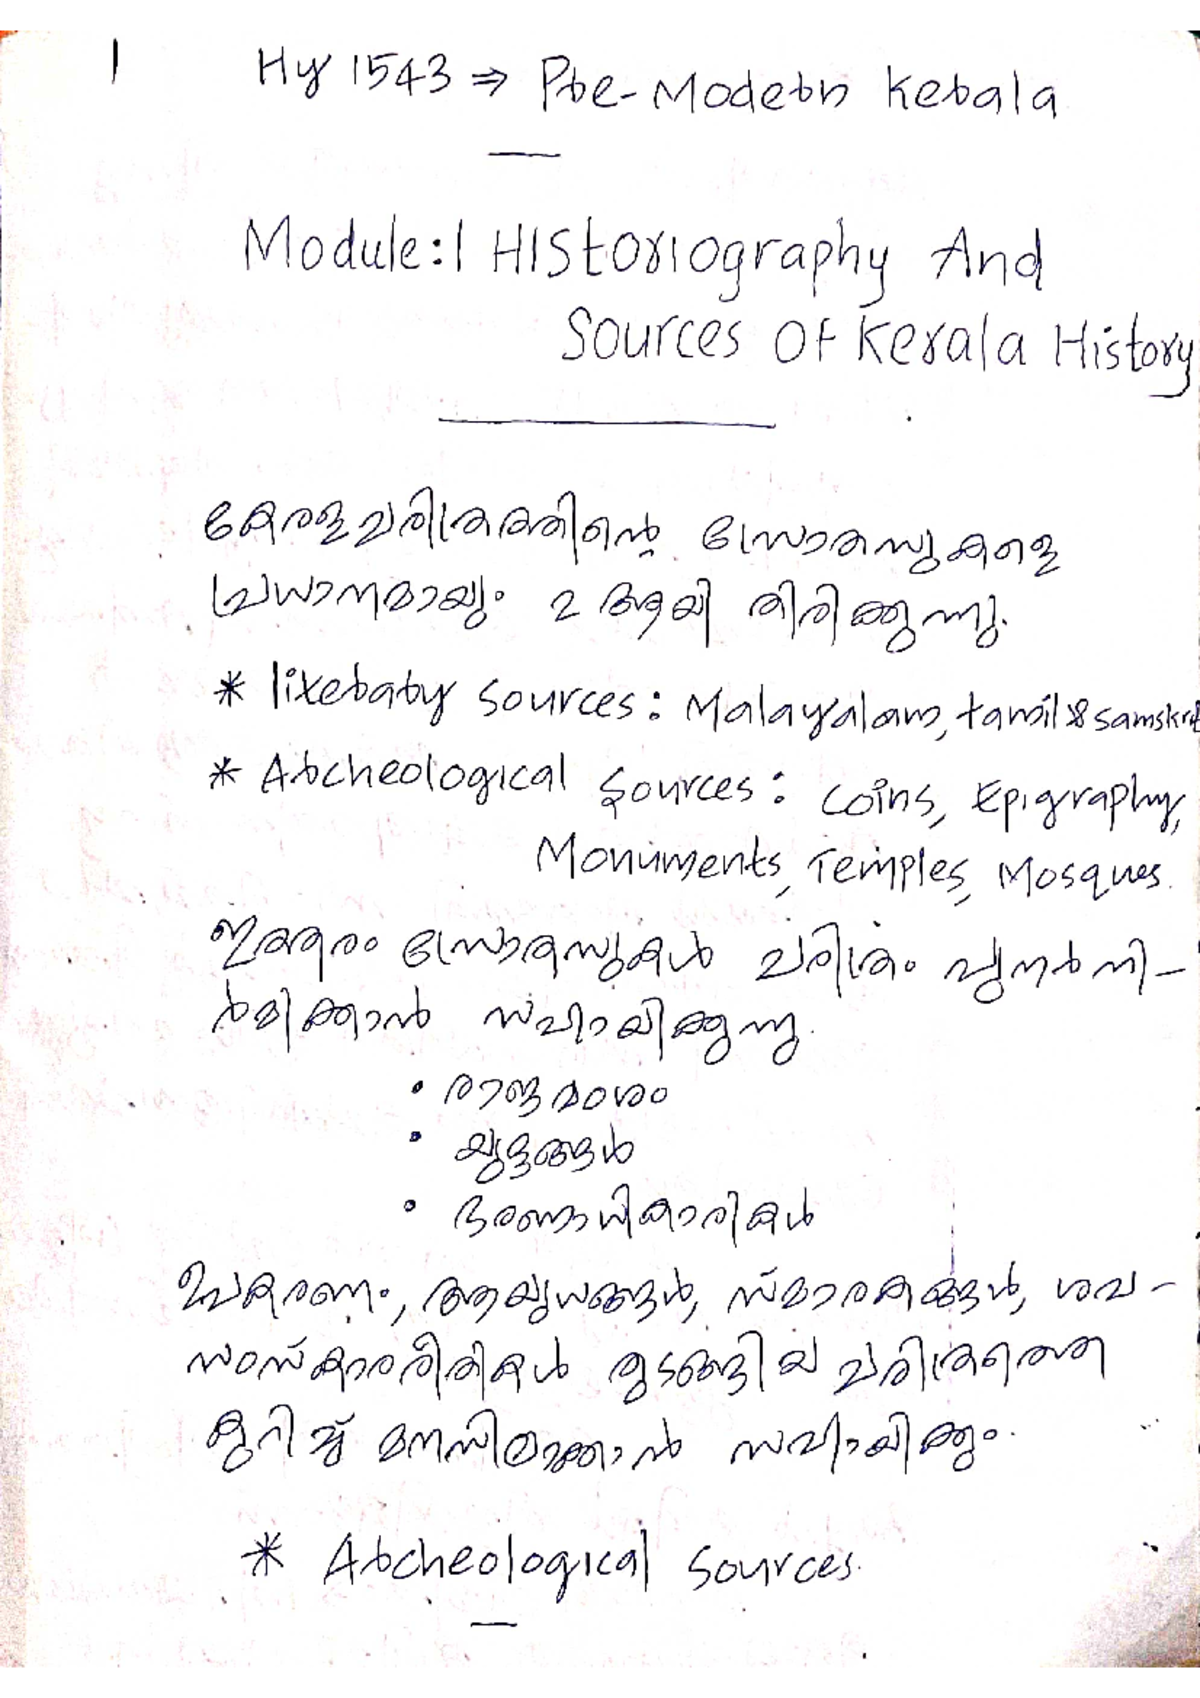 1
Hy 1543 ⇒ Pre-Modern Kerala
Module:1 HIStoriography And
Sources Of Kerala History
കേരളചരിത്രത്തിന്റെ സ്രോതസുകളെ
പ്രധാനമായും 2 ആയി തിരിക്കുന്നു.
* literary sources: Malayalam, tamil & samskrit
* Archeological Sources: Coins, Epigraphy,
Monuments, Temples, Mosques.
ഇത്തരം സ്രോതസുകൾ ചരിത്രം പുനർനി-
ർമിക്കാൻ സഹായിക്കുന്നു.
• രാജവംശം
• യുദ്ധങ്ങൾ
• ഭരണാധികാരികൾ
ഉപകരണം, ആയുധങ്ങൾ, സ്മാരകങ്ങൾ, ശവ-
സംസ്കാരരീതികൾ തുടങ്ങിയ ചരിത്രത്തെ
കുറിച്ച് മനസിലാക്കാൻ സഹായിക്കും.
* Archeological Sources.